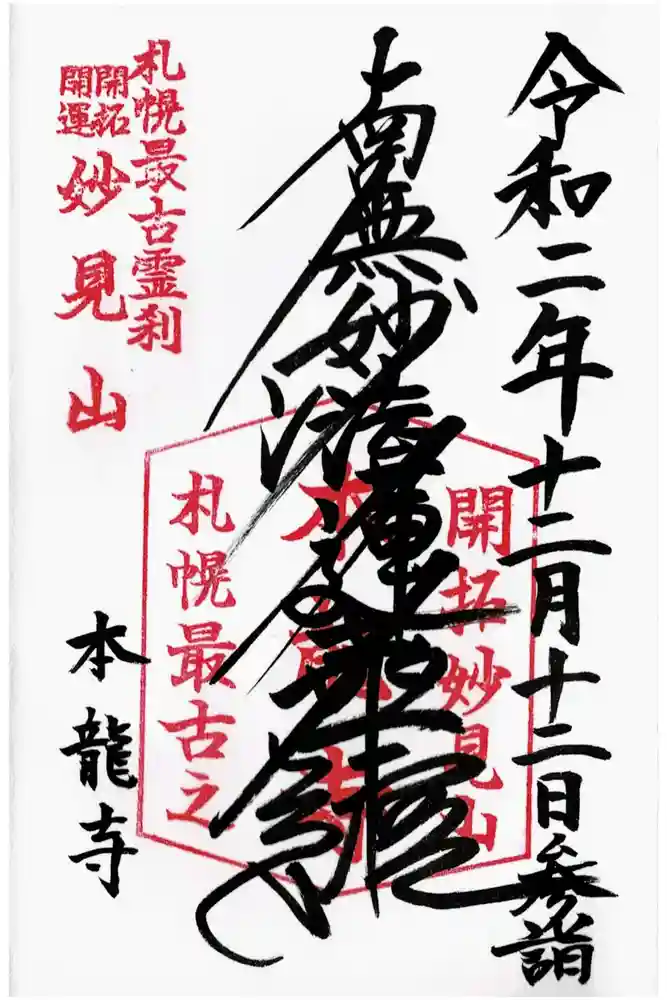 令和二年十二月十二日参詣
南無妙法蓮華経
開拓妙見山
本龍寺
札幌最古之
札幌最古霊刹
開拓
開運
妙見山
本龍寺